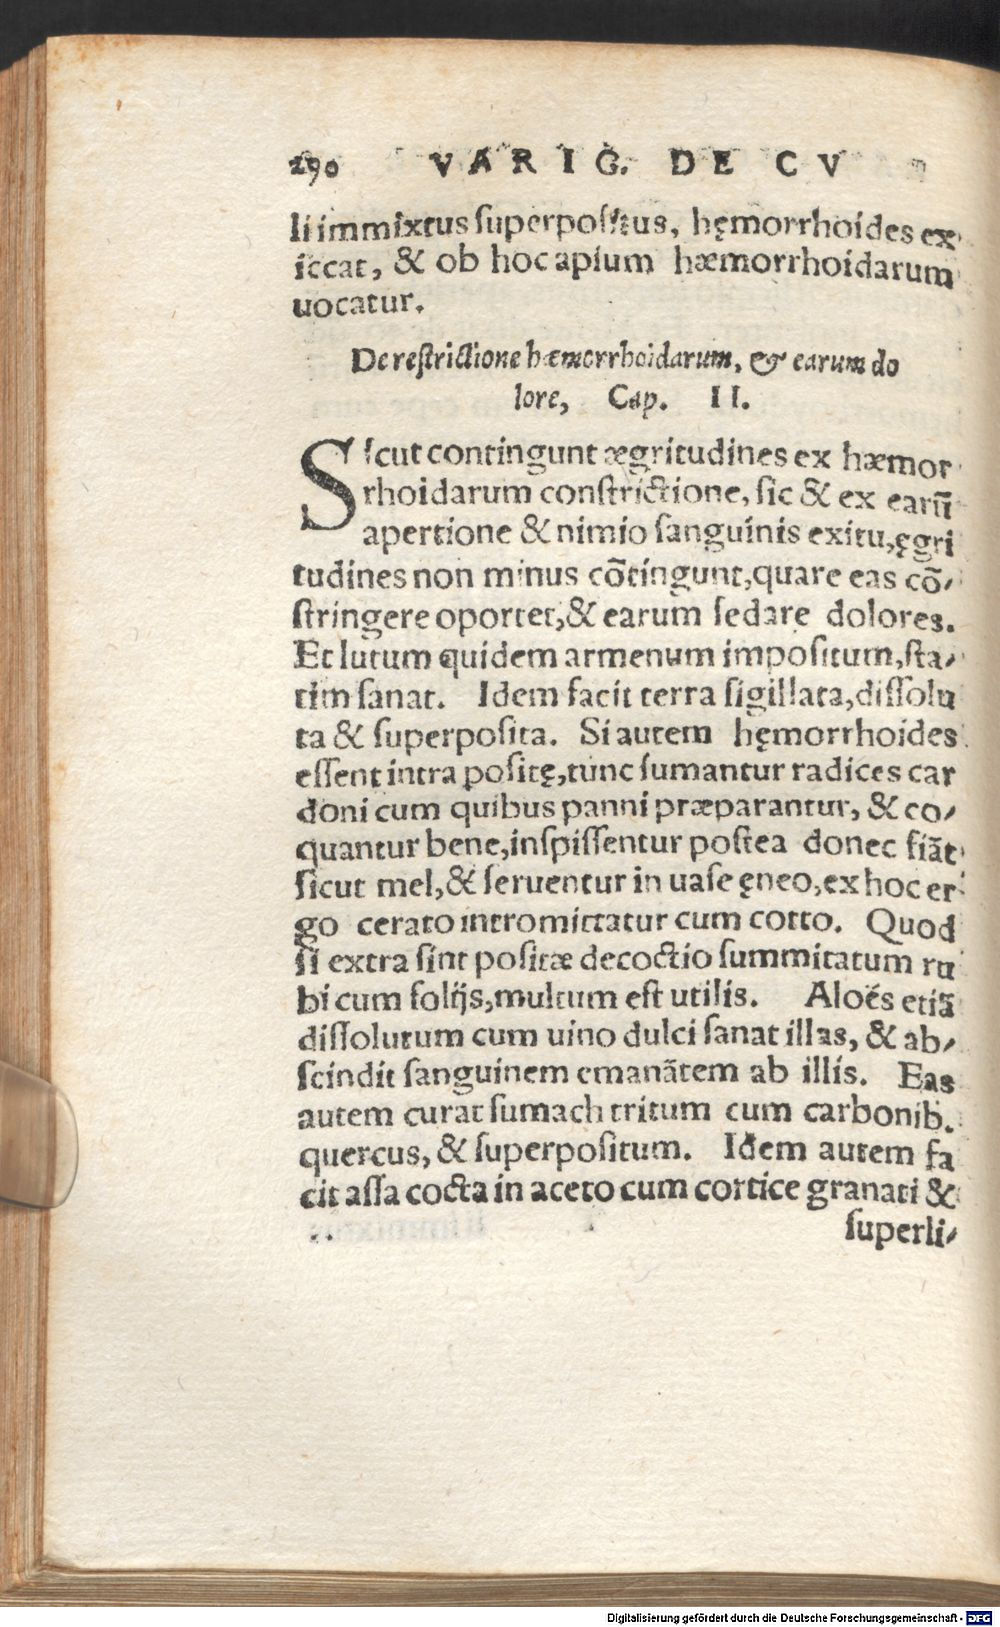 290 VARIG. DE CV
li immixtus superpositus, hęmorrhoides ex
iccat, & ob hoc apium hæmorrhoidarum
uocatur.
De restrictione hæmorrhoidarum, & earum do
lore, Cap. II.
Sicut contingunt ægritudines ex hæmor
rhoidarum constrictione, sic & ex earũ
apertione & nimio sanguinis exitu, ęgri
tudines non minus cõtingunt, quare eas cõ-
stringere oportet, & earum sedare dolores.
Et lutum quidem armenum impositum, sta-
tim sanat. Idem facit terra sigillata, dissolu
ta & superposita. Si autem hęmorrhoides
essent intra positę, tunc sumantur radices car
doni cum quibus panni præparantur, & co-
quantur bene, inspissentur postea donec fiãt
sicut mel, & seruentur in uase ęneo, ex hoc er
go cerato intromittatur cum cotto. Quod
si extra sint positæ decoctio summitatum ru
bi cum folijs, multum est utilis. Aloës etiã
dissolutum cum uino dulci sanat illas, & ab-
scindit sanguinem emanãtem ab illis. Eas
autem curat sumach tritum cum carbonib.
quercus, & superpositum. Idem autem fa
cit assa cocta in aceto cum cortice granati &
superli-
Digitalisierung gefördert durch die Deutsche Forschungsgemeinschaft - DFG